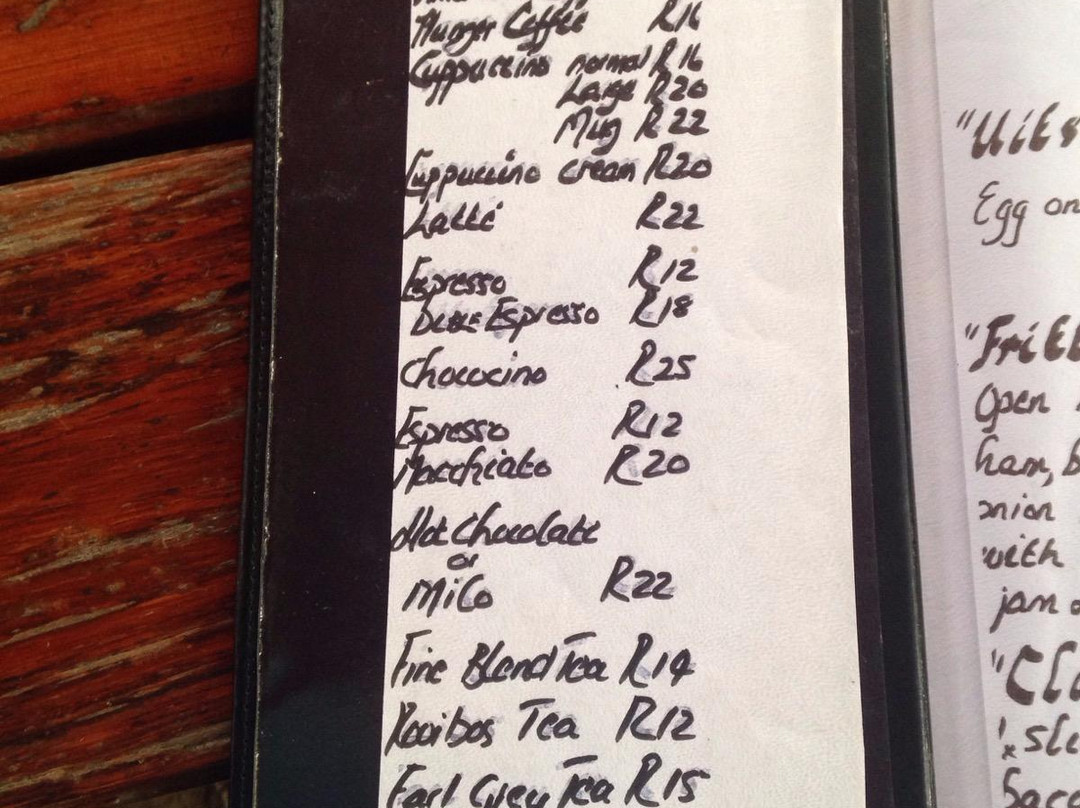 Coffee R16
Cuppuccino normal R16
Large R20
Mug R22
Cuppuccino cream R20
Latté R22
Espresso R12
Espresso R18
Chococino R25
Espresso R12
Macchiato R20
Hot Chocolate
or
Milo R22
Fine Blend Tea R14
Rooibos Tea R12
Earl Grey Tea R15
Egg on
Open
ham, b
onion
with
jam